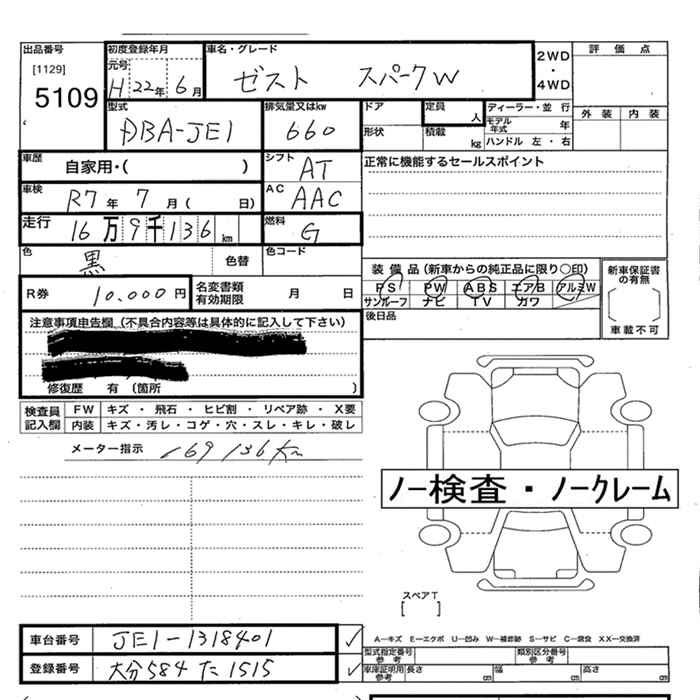 出品番号
[1129]
5109
初度登録年月
元号
H 22年 6月
車名・グレード
ゼスト スパークW
2WD
・
4WD
評価点
型式
DBA-JE1
排気量又はkw
660
ドア
定員
人
形状
積載
kg
ディーラー・並行
モデル年式
年
ハンドル 左・右
外装 内装
車歴
自家用・( )
シフト
AT
正常に機能するセールスポイント
車検
R7年 7月( 日)
AC
AAC
走行
16万9千136km
燃料
G
色
黒
色替
色コード
R券
10,000円
名変書類
有効期限
月 日
装備品(新車からの純正品に限り〇印)
PS PW ABS エアB アルミW
サンルーフ ナビ TV カワ
新車保証書
の有無
車載不可
後日品
注意事項申告欄(不具合内容等は具体的に記入して下さい)
修復歴 有(箇所 )
検査員
記入欄
FW キズ・飛石・ヒビ割・リペア跡・X要
内装 キズ・汚レ・コゲ・穴・スレ・キレ・破レ
メーター指示 169136km
ノー検査・ノークレーム
スペアT
[ ]
車台番号
JE1-1318401
登録番号
大分584た1515
A―キズ E―エクボ U―凹み W―補修跡 S―サビ C―腐食 XX―交換済
型式指定番号
参考
類別区分番号
参考
車庫証明用
参考
長さ
cm
幅
cm
高さ
cm